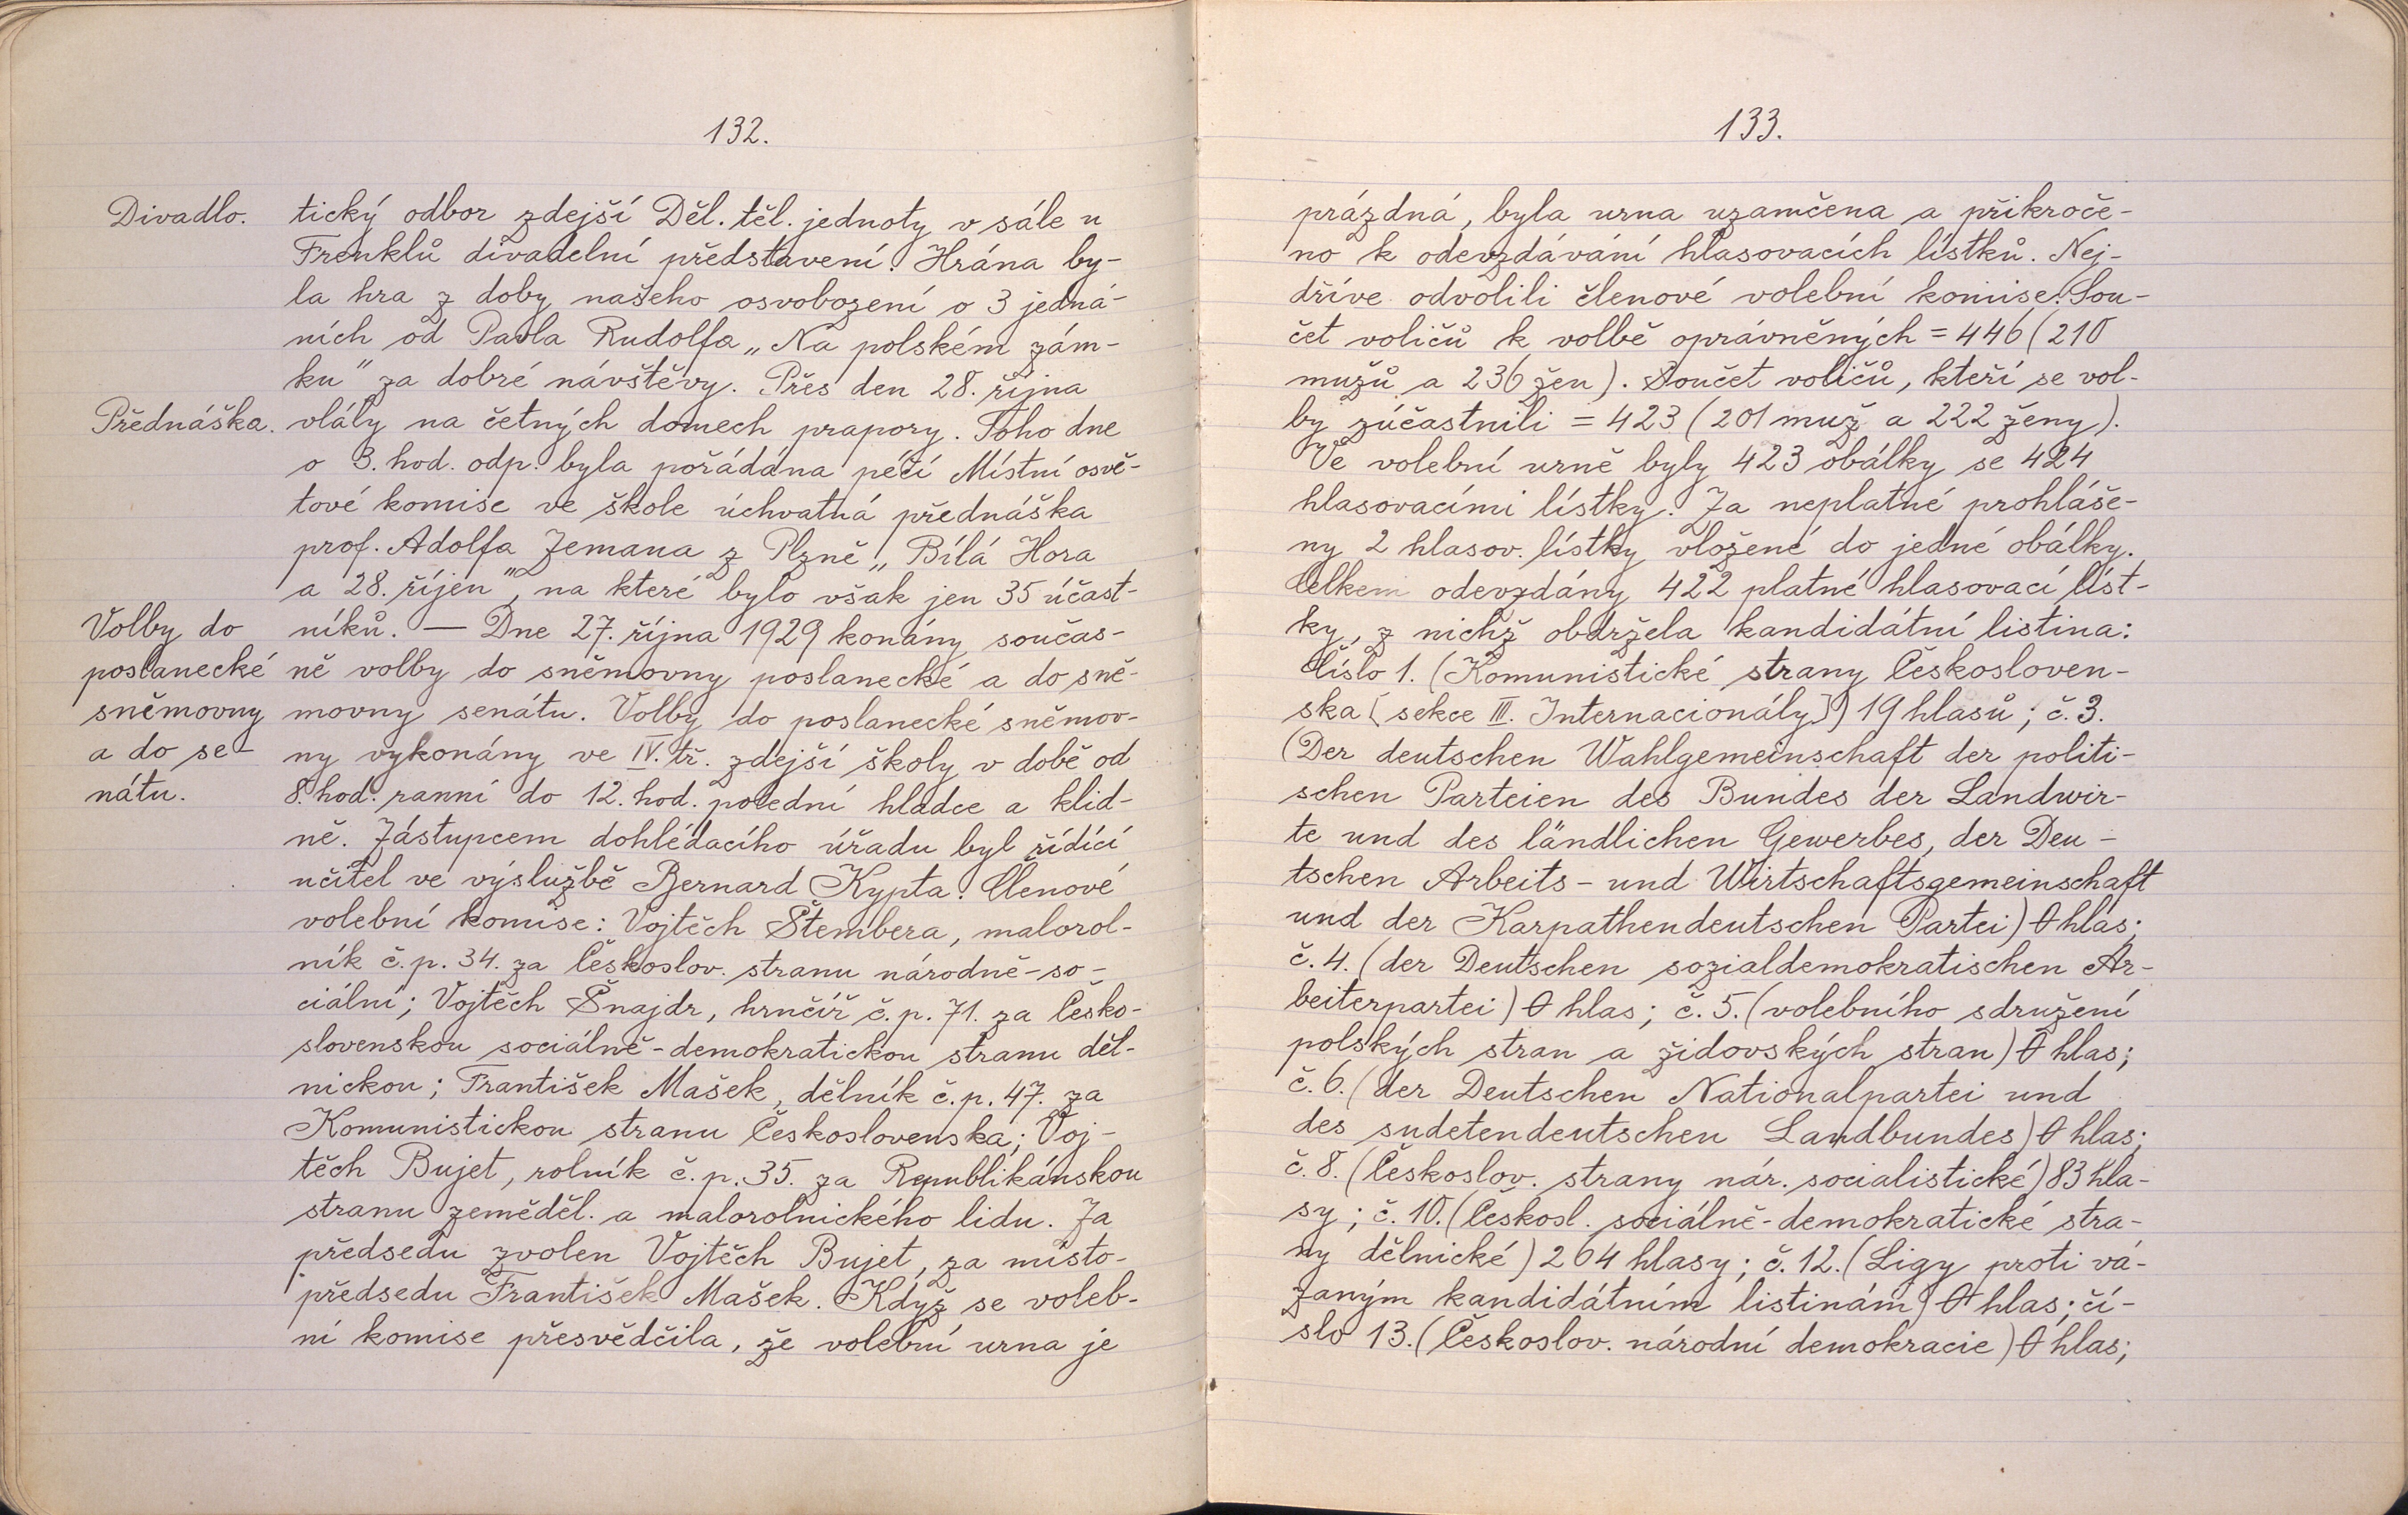 132.
Divadlo.
tický odbor zdejší Děl. těl. jednoty v sále u
Frenklů divadelní představení. Hrána by-
la hra z doby našeho osvobození o 3 jedná-
ních od Pavla Rudolfa „Na polském zám-
ku" za dobré návštěvy. Přes den 28. října
Přednáška.
vlály na četných domech prapory. Toho dne
o 3. hod. odp. byla pořádána péčí Místní osvě-
tové komise ve škole úchvatná přednáška
prof. Adolfa Zemana z Plzně „Bílá Hora
a 28. říjen", na které bylo však jen 35 účast-
Volby do
poslanecké
sněmovny
a do se-
nátu.
níků. — Dne 27. října 1929 konány součas-
ně volby do sněmovny poslanecké a do sně-
movny senátu. Volby do poslanecké sněmov-
ny vykonány ve IV. tř. zdejší školy v době od
8. hod. ranní do 12. hod. polední hladce a klid-
ně. Zástupcem dohlédacího úřadu byl řídící
učitel ve výslužbě Bernard Kypta. Členové
volební komise: Vojtěch Štembera, malorol-
ník č.p. 34. za Českoslov. stranu národně-so-
ciální; Vojtěch Šnajdr, hrnčíř č.p. 71. za Česko-
slovenskou sociálně-demokratickou stranu děl-
nickou; František Mašek, dělník č.p. 47. za
Komunistickou stranu Československa; Voj-
těch Bujet, rolník č.p. 35. za Republikánskou
stranu zeměděl. a malorolnického lidu. Za
předsedu zvolen Vojtěch Bujet, za místo-
předsedu František Mašek. Když se voleb-
ní komise přesvědčila, že volební urna je
133.
prázdná, byla urna uzamčena a přikroče-
no k odevzdávání hlasovacích lístků. Nej-
dříve odvolili členové volební komise. Sou-
čet voličů k volbě oprávněných = 446 (210
mužů a 236 žen). Součet voličů, kteří se vol-
by zúčastnili = 423 (201 muž a 222 ženy).
Ve volební urně byly 423 obálky se 424
hlasovacími lístky. Za neplatné prohláše-
ny 2 hlasov. lístky vložené do jedné obálky.
Celkem odevzdány 422 platné hlasovací líst-
ky, z nichž obdržela kandidátní listina:
Číslo 1. (Komunistické strany Českosloven-
ska [sekce III. Internacionály]) 19 hlasů; č. 3.
(Der deutschen Wahlgemeinschaft der politi-
schen Parteien des Bundes der Landwir-
te und des ländlichen Gewerbes, der Deu-
tschen Arbeits- und Wirtschaftsgemeinschaft
und der Karpathendeutschen Partei) 0 hlas;
č. 4. (der Deutschen sozialdemokratischen Ar-
beiterpartei) 0 hlas; č. 5. (volebního sdružení
polských stran a židovských stran) 0 hlas;
č. 6. (der Deutschen Nationalpartei und
des sudetendeutschen Landbundes) 0 hlas;
č. 8. (Českoslov. strany nár. socialistické) 83 hla-
sy; č. 10. (Českosl. sociálně-demokratické stra-
ny dělnické) 264 hlasy; č. 12. (Ligy proti vá-
zaným kandidátním listinám) 0 hlas; čí-
slo 13. (Českoslov. národní demokracie) 0 hlas;